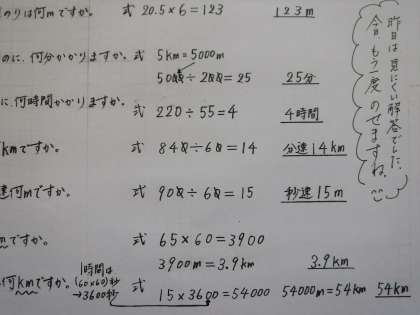 のりは何mですか。 式 20.5×6=123 123m
のに、何分かかりますか。 式 5km=5000m
5000÷200=25 25分
に、何時間かかりますか。
式 220÷55=4 4時間
kmですか。 式 840÷60=14 分速14km
速何mですか。 式 900÷60=15 秒速15m
mですか。 式 65×60=3900
3900m=3.9km 3.9km
何kmですか。 1時間は
(60×60)秒
→3600秒
式 15×3600=54000 54000m=54km 54km
昨日は見にくい解答でした。
今、もう一度のせますね。